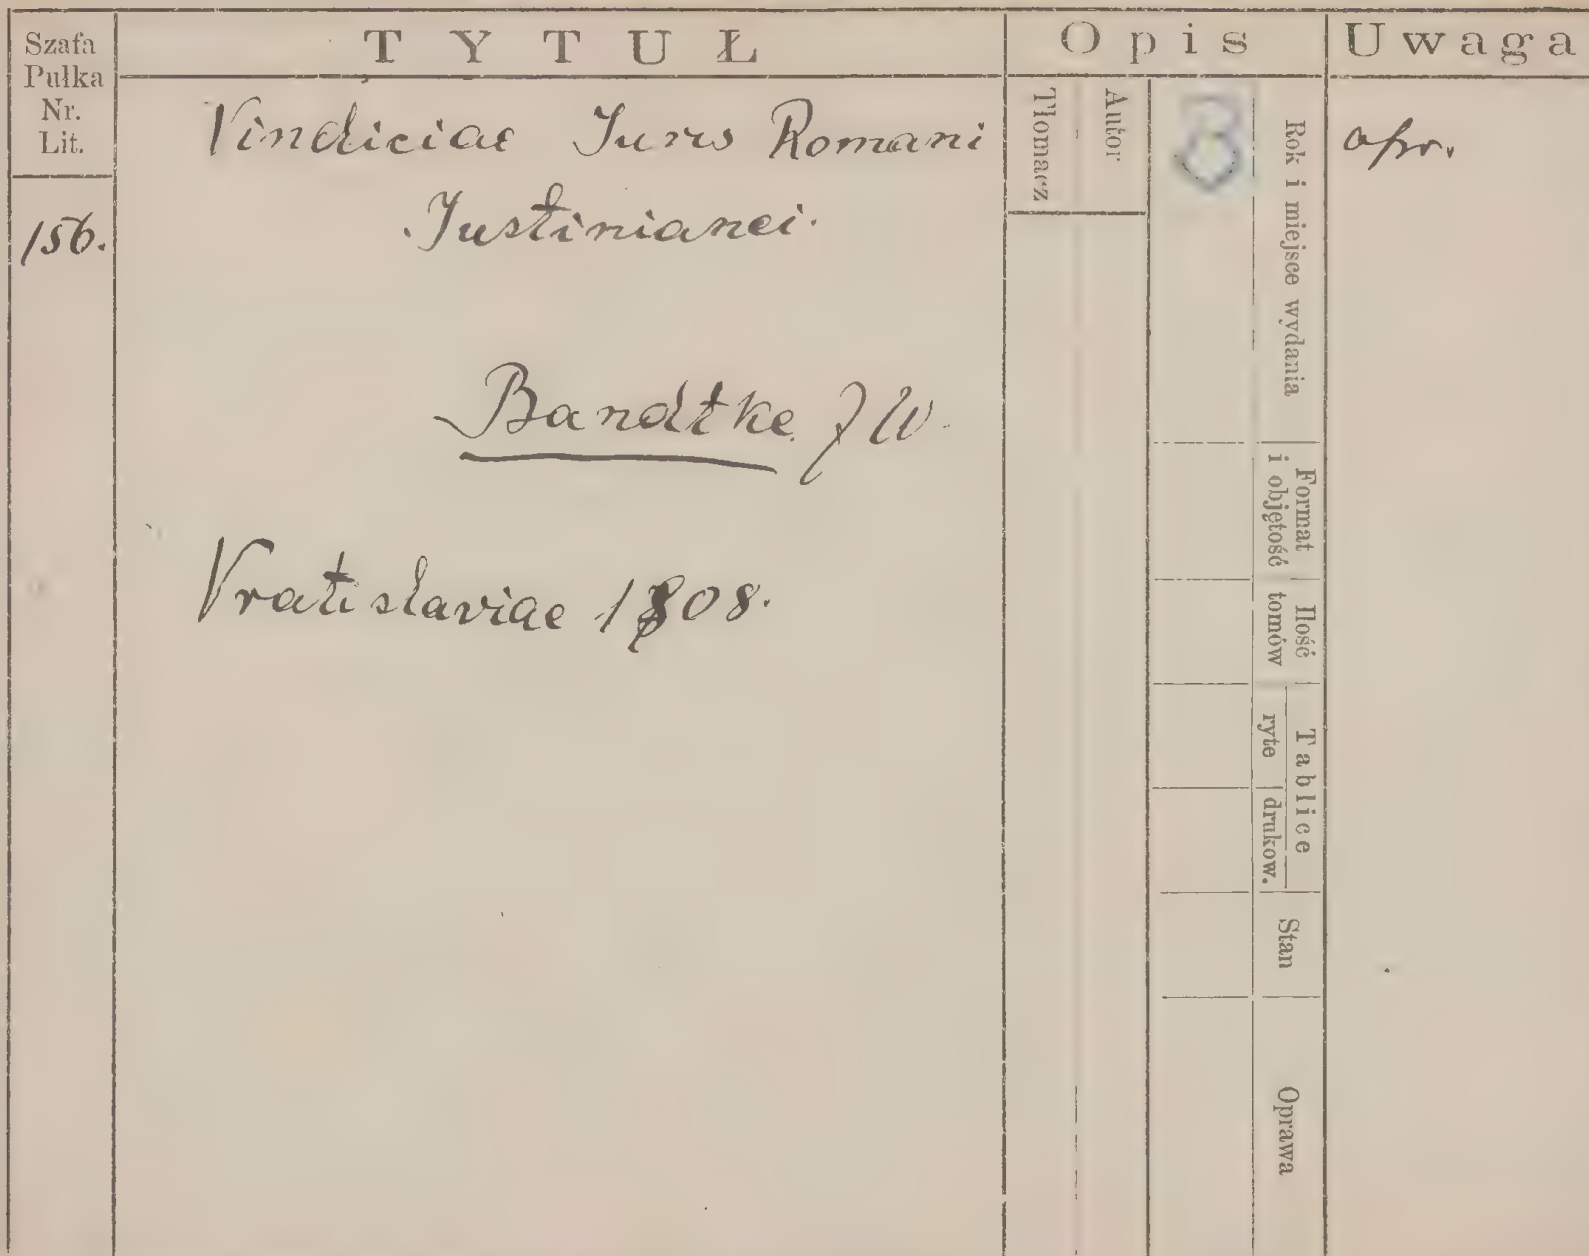 Szafa
Pułka
Nr.
Lit.
TYTUŁ
Opis
Uwaga
156.
Vindiciae Juris Romani
Justinianei.
Bandtke J W.
Vratislaviae 1808.
Tłomacz
Autor
B
Rok i miejsce wydania
Format
i objętość
Ilość
tomów
Tablice
ryte
drukow.
Stan
Oprawa
opr.